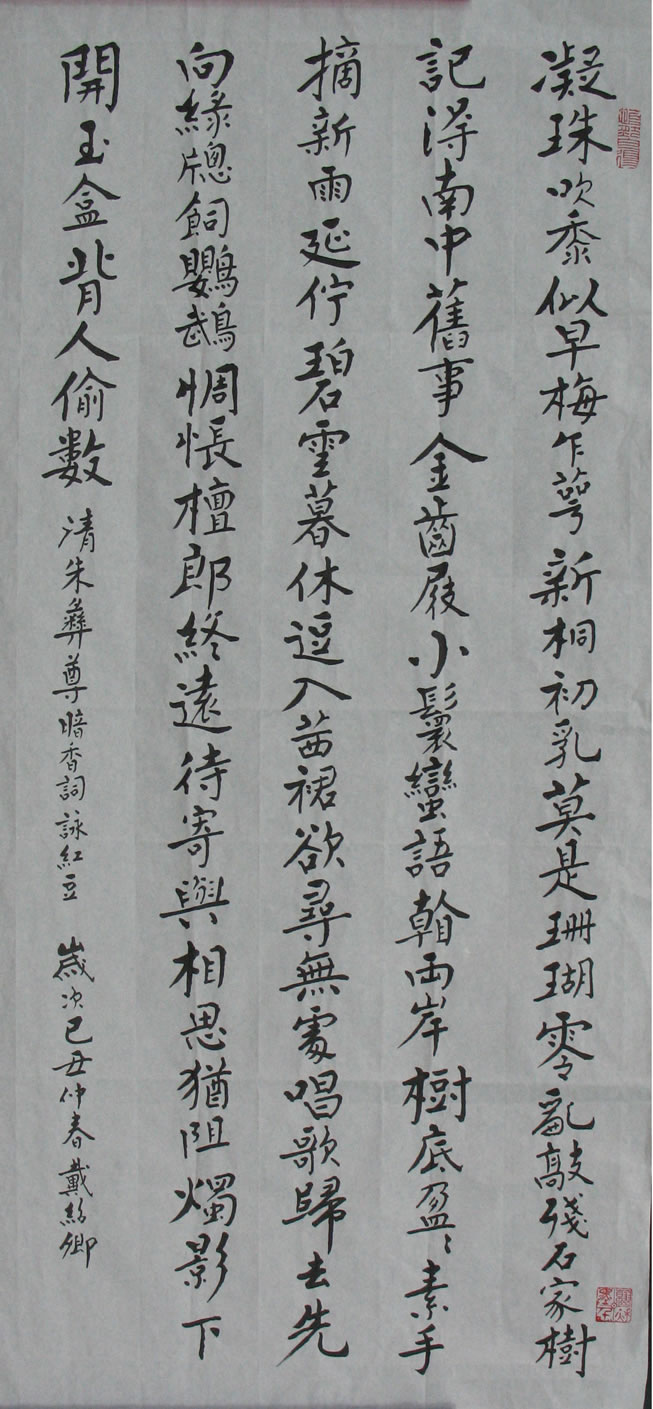 凝珠吹黍似早梅乍萼新桐初乳莫是珊瑚零亂敲殘石家樹
記得南中舊事金齒屐小鬟蠻語兩岸樹底盈〻素手
摘新雨延佇碧雲暮休逗入茜裙欲尋無處唱歌歸去先
向綠牕飼鸚鵡惆悵檀郎終遠待寄與相思猶阻燭影下
開玉盒背人偷數 清朱彝尊暗香詞詠紅豆 歲次己丑仲春戴紹卿